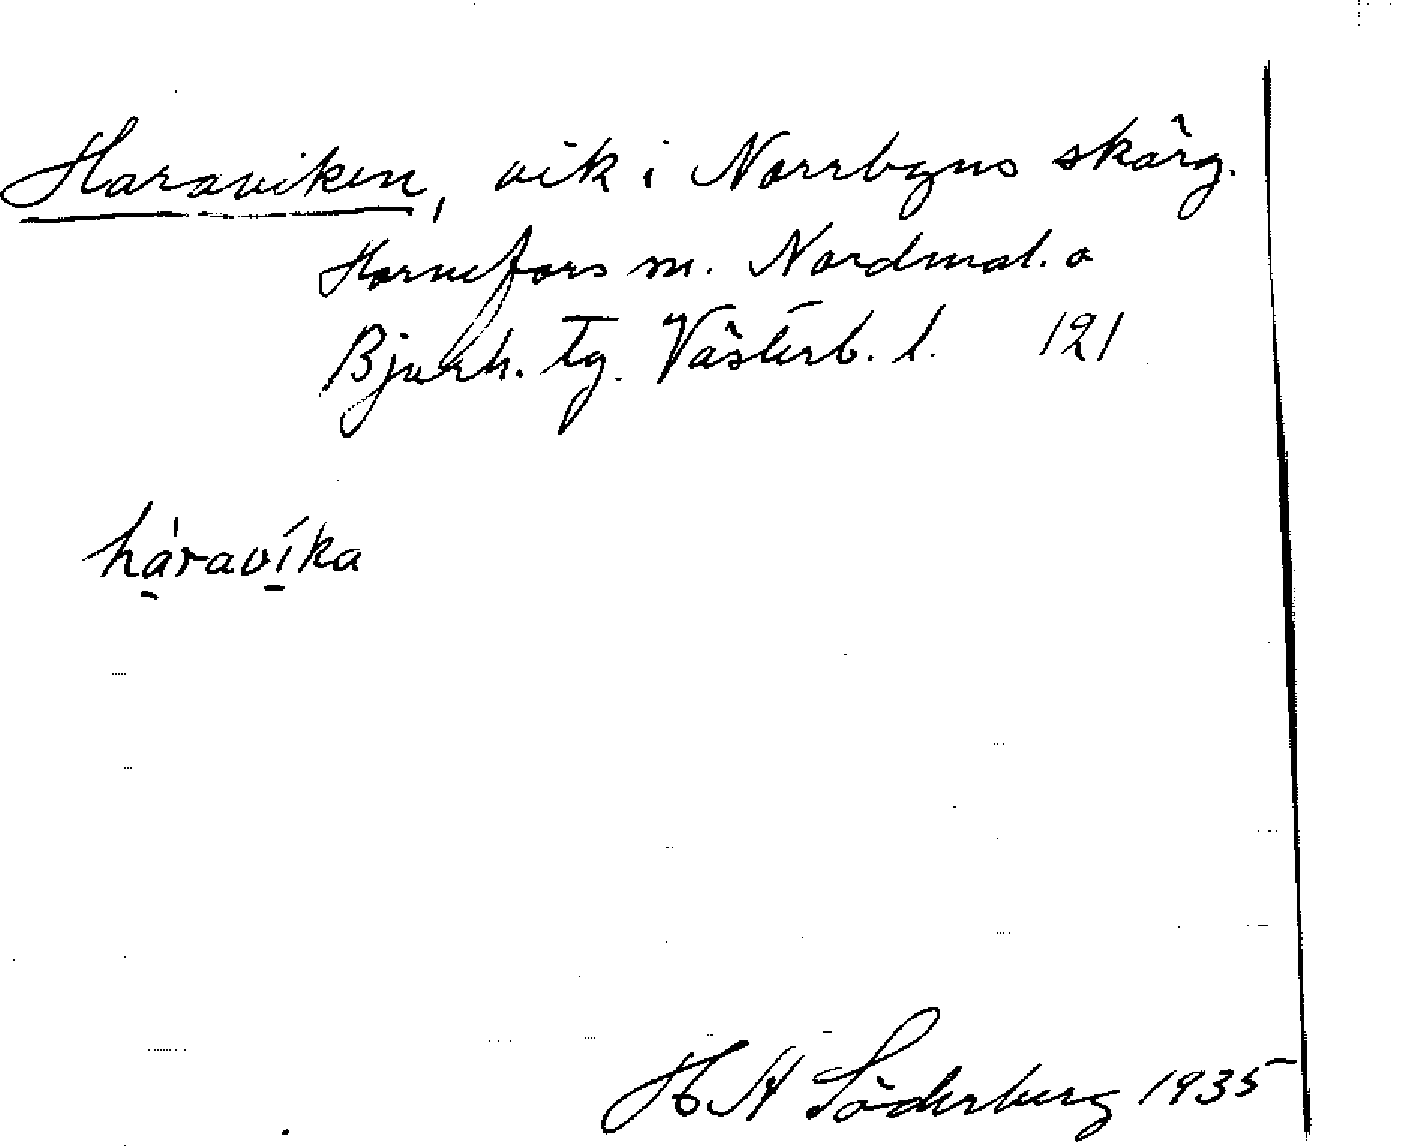 Haraviken, vik i Norrbyns skärg.
Hörnefors sn. Nordmal. o
Bjurh. tg. Västerb. l. 121
há̱raví̱ka
H A Söderberg 1935